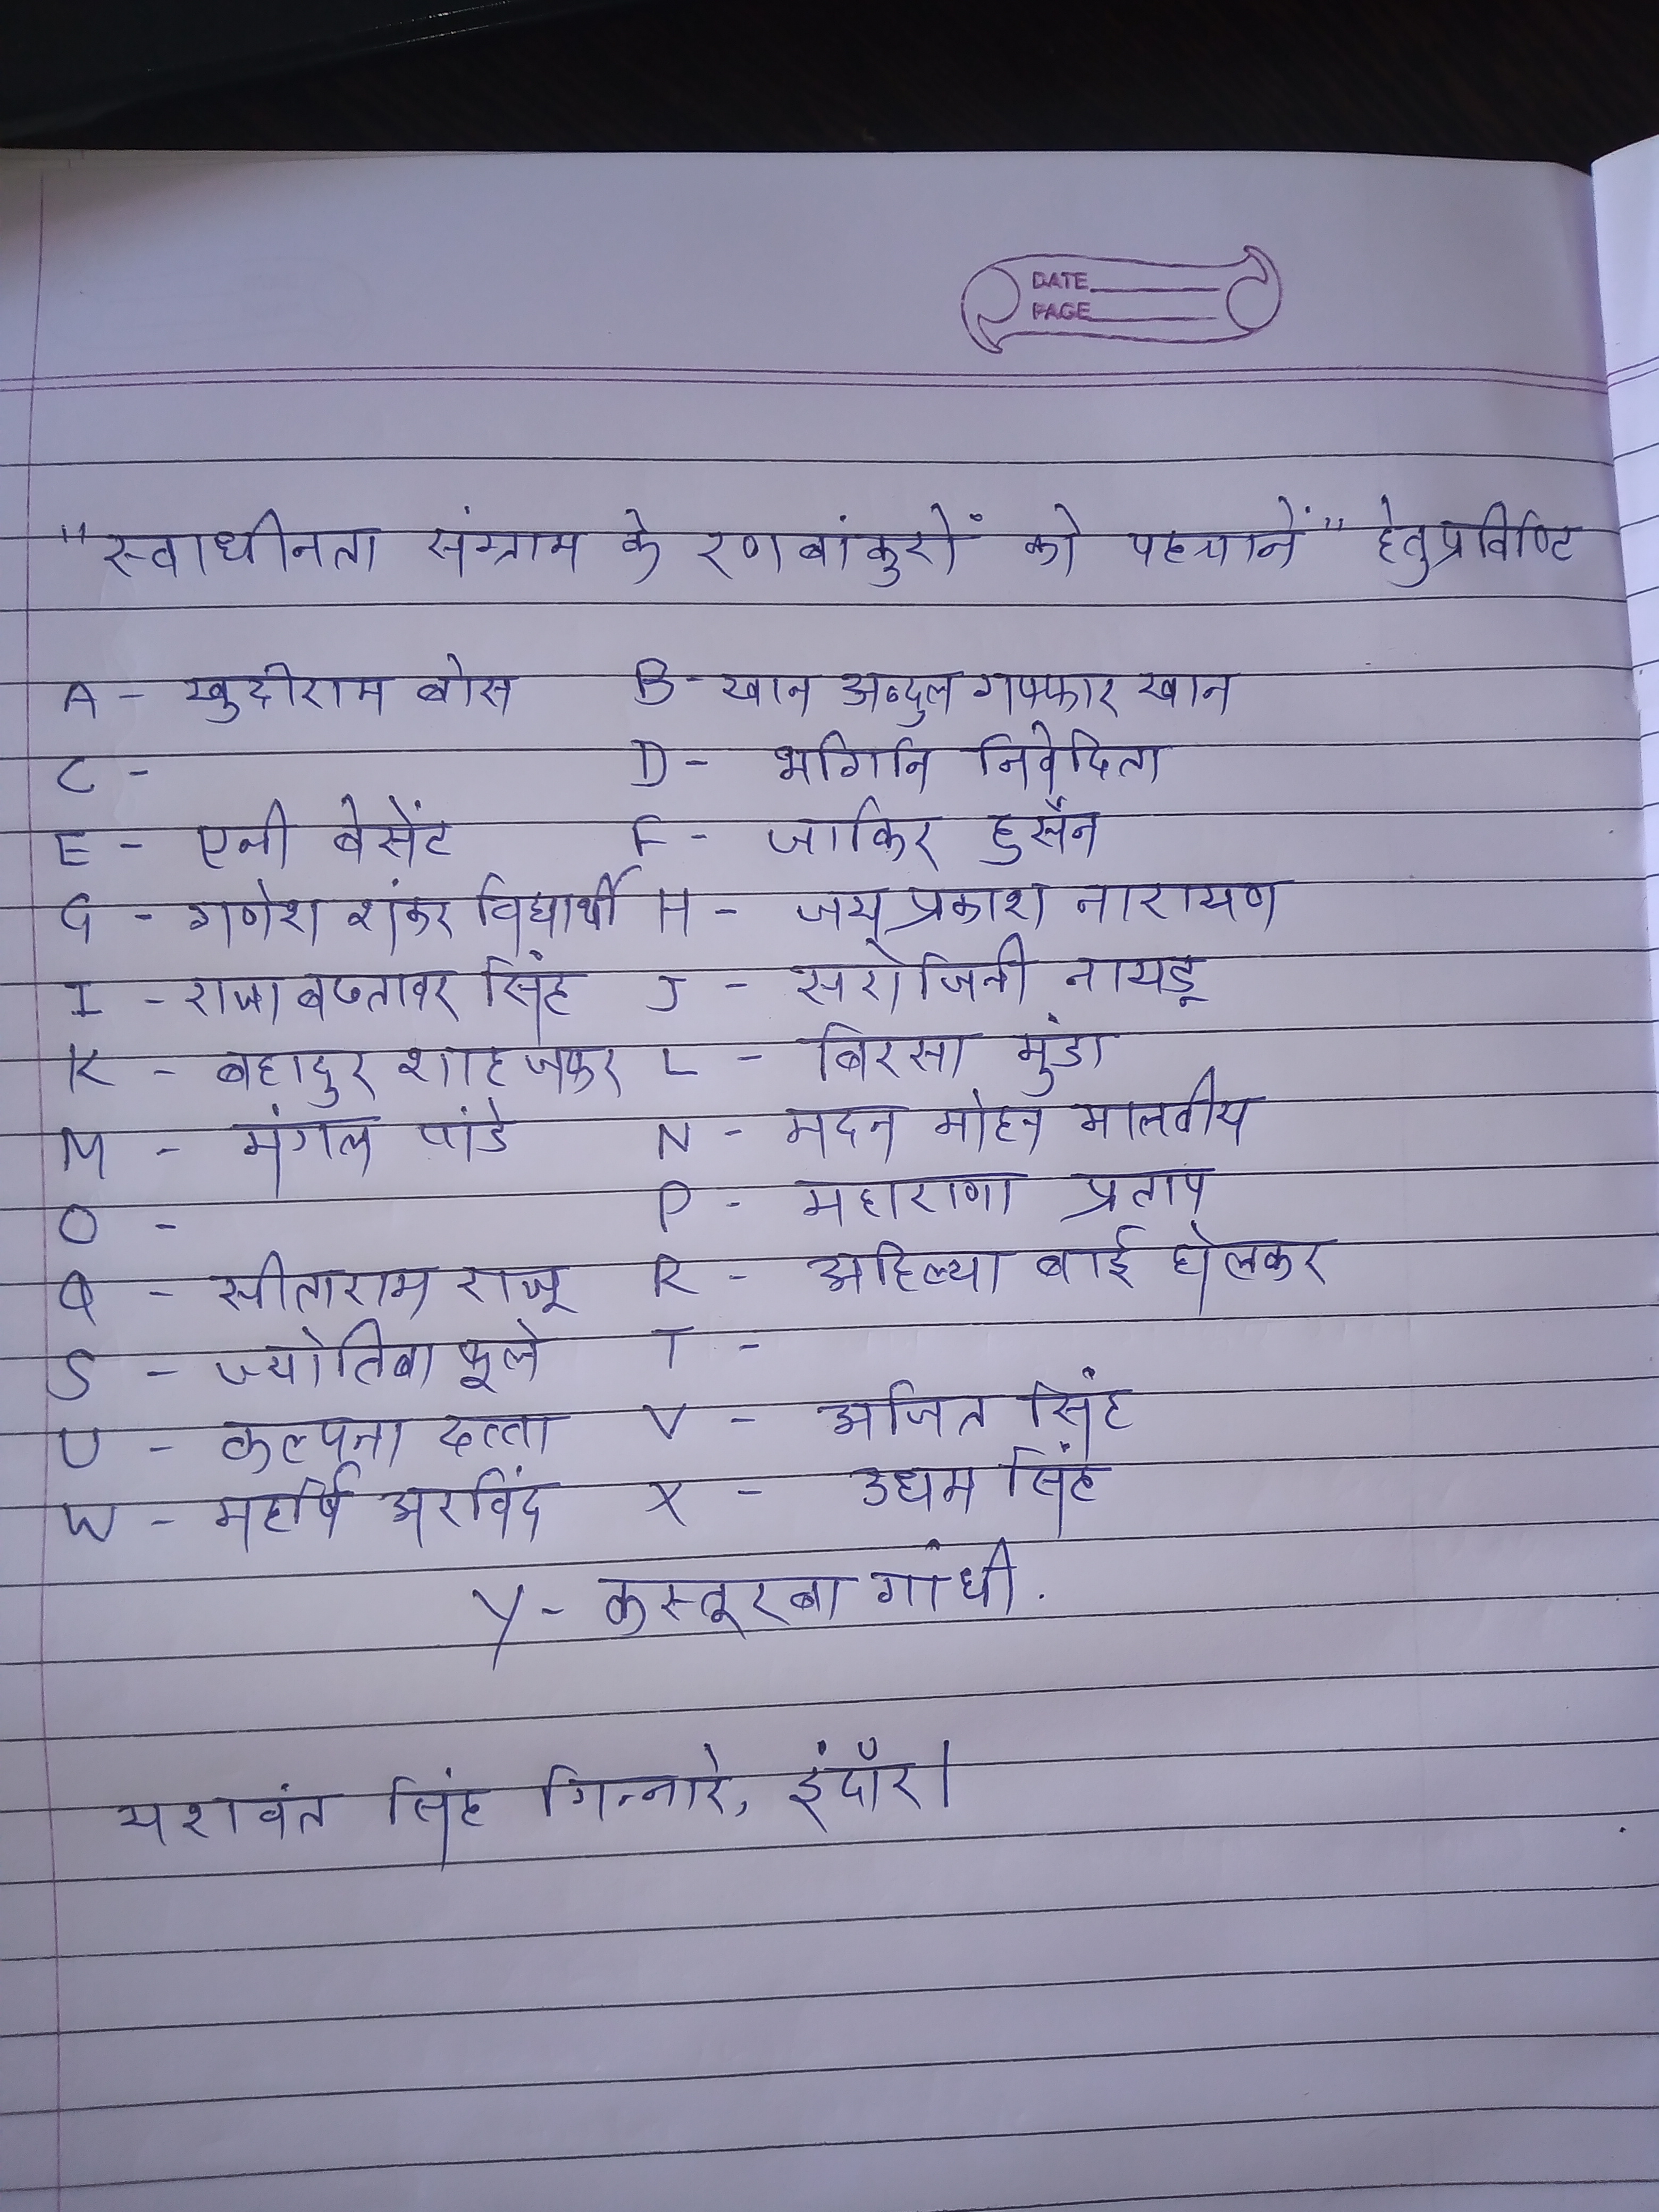 DATE
PAGE
"स्वाधीनता संग्राम के रणबांकुरों को पहचानें" हेतु प्रविष्टि
A - खुदीराम बोस B - खान अब्दुल गफ्फार खान
C - D - भगिनि निवेदिता
E - एनी बेसेंट F - जाकिर हुसैन
G - गणेश शंकर विद्यार्थी H - जयप्रकाश नारायण
I - राजा बख्तावर सिंह J - सरोजिनी नायडू
K - बहादुर शाह जफर L - बिरसा मुंडा
M - मंगल पांडे N - मदन मोहन मालवीय
O - P - महाराणा प्रताप
Q - सीताराम राजू R - अहिल्या बाई होलकर
S - ज्योतिबा फूले T -
U - कल्पना दत्ता V - अजित सिंह
W - महर्षि अरविंद X - उधम सिंह
Y - कस्तूरबा गांधी.
यशवंत सिंह गिन्नारे, इंदौर।